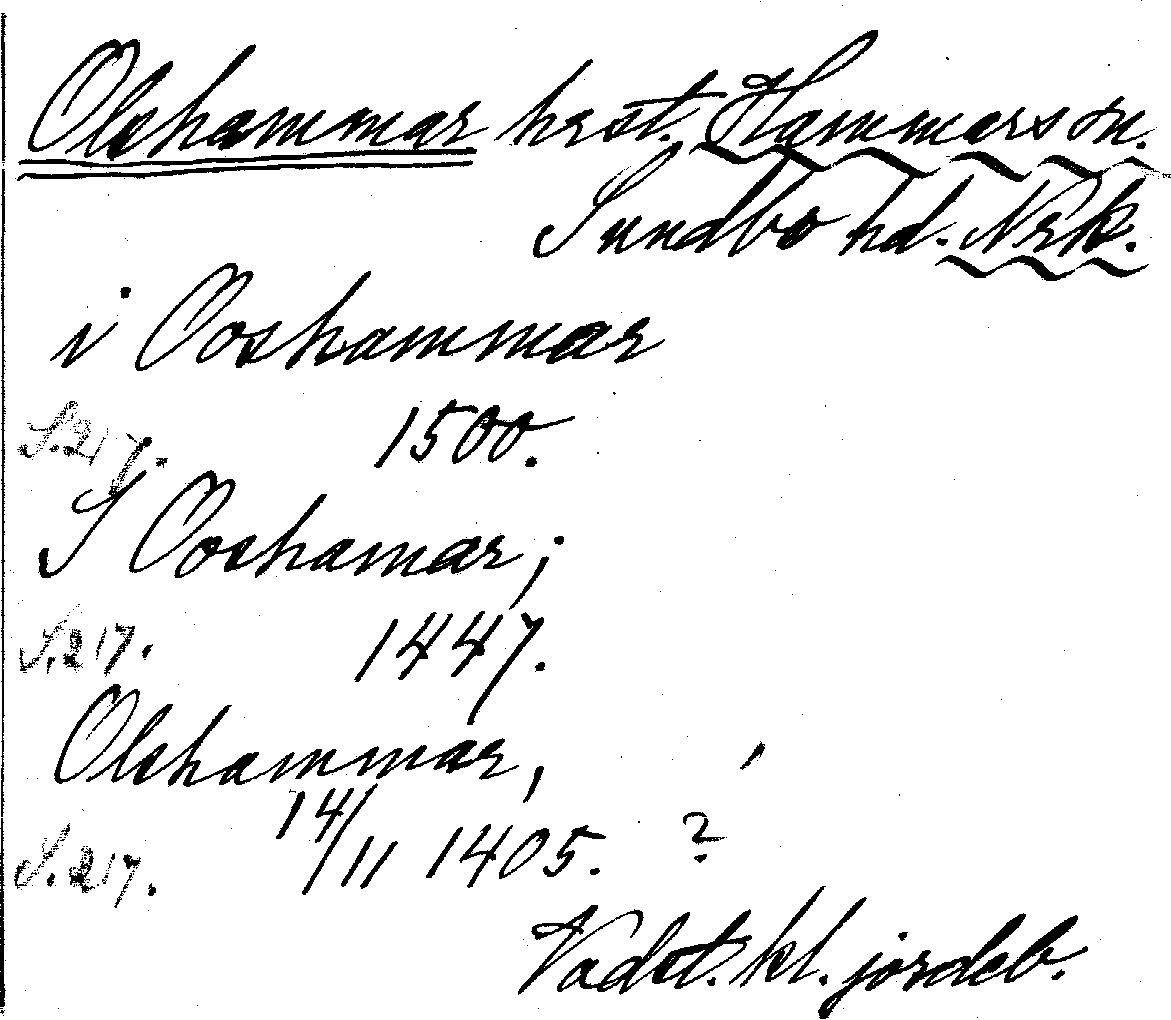 Olshammar hrst. Hammars sn.
Sundbo hd. Nrk.
i Ooshammar
S. 217. 1500.
I Ooshamar;
S. 217. 1447.
Olshammar,
S. 217. 14/11 1405. ?
Vadst. kl. jordeb.